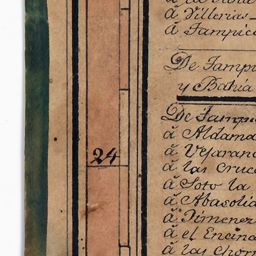 á Villerias
á Tampico
De Tampi
y Bahia
De Tampi
á Aldama
24
á Vejaran
á las Cruc
á Soto la
á Abasolo
á Ximenez
á el Encina
á las Chor